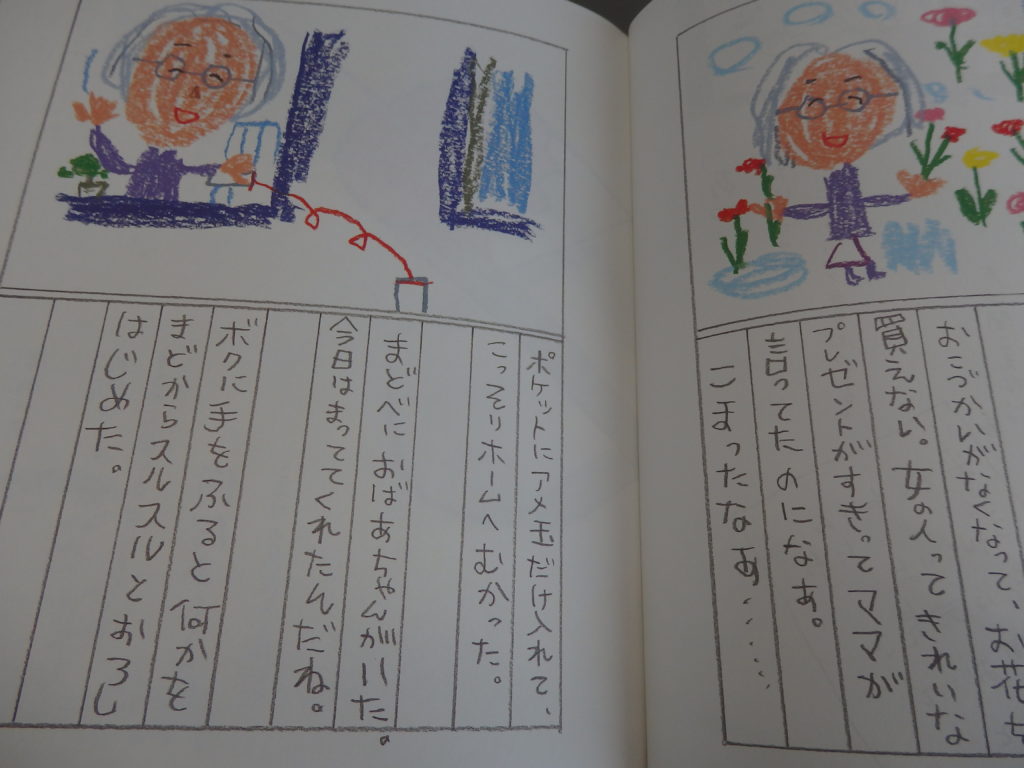 おこづかいがなくなって、お花も
買えない。女の人ってきれいな
プレゼントがすきってママが
言ってたのになぁ。
こまったなぁ・・・・・
ポケットにアメ玉だけ入れて、
こっそりホームへむかった。
まどべにおばあちゃんがいた。
今日はまっててくれたんだね。
ボクに手をふると何かを
まどからスルスルとおろし
はじめた。